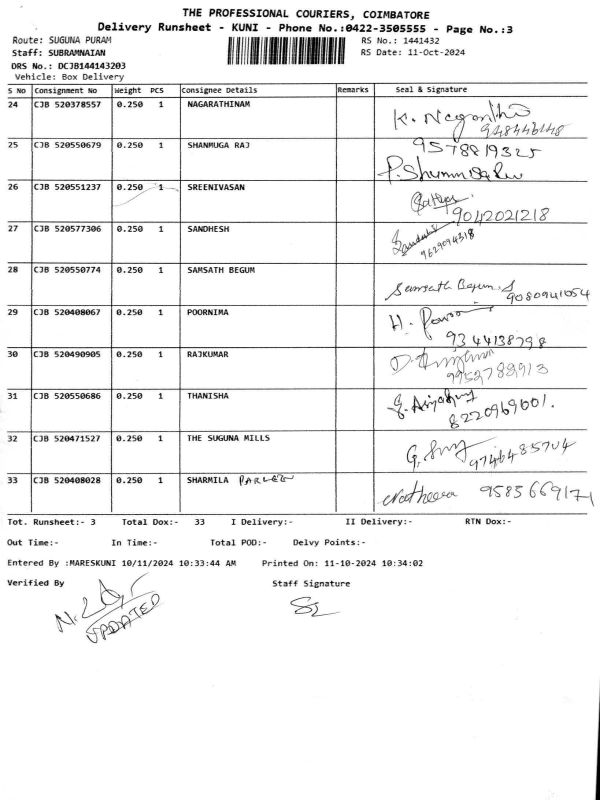 THE PROFESSIONAL COURIERS, COIMBATORE
Delivery Runsheet - KUNI - Phone No.:0422-3505555 - Page No.:3
Route: SUGUNA PURAM RS No.: 1441432
Staff: SUBRAMNAIAN RS Date: 11-Oct-2024
DRS No.: DCJB144143203
Vehicle: Box Delivery
S No Consignment No Weight PCS Consignee Details Remarks Seal & Signature
24 CJB 520378557 0.250 1 NAGARATHINAM
25 CJB 520550679 0.250 1 SHANMUGA RAJ 9578819325
26 CJB 520551237 0.250 1 SREENIVASAN 9042021218
27 CJB 520577306 0.250 1 SANDHESH 9629094318
28 CJB 520550774 0.250 1 SAMSATH BEGUM Samsath Begum. S 9080941054
29 CJB 520408067 0.250 1 POORNIMA 9344138798
30 CJB 520490905 0.250 1 RAJKUMAR 9952788913
31 CJB 520550686 0.250 1 THANISHA 8220969001.
32 CJB 520471527 0.250 1 THE SUGUNA MILLS 9746485704
33 CJB 520408028 0.250 1 SHARMILA 9585669171
Tot. Runsheet:- 3 Total Dox:- 33 I Delivery:- II Delivery:- RTN Dox:-
Out Time:- In Time:- Total POD:- Delvy Points:-
Entered By :MARESKUNI 10/11/2024 10:33:44 AM Printed On: 11-10-2024 10:34:02
Verified By Staff Signature
UPDATED